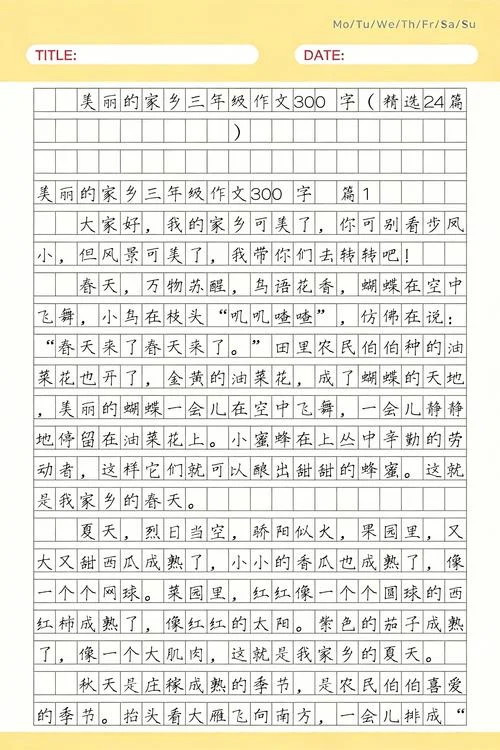 Mo/Tu/We/Th/Fr/Sa/Su
TITLE:
DATE:
美丽的家乡三年级作文300 字（精选24篇
）
美丽的家乡三年级作文300 字 篇1
大家好，我的家乡可美了，你可别看步凤
小，但风景可美了，我带你们去转转吧！
春天，万物苏醒，鸟语花香，蝴蝶在空中
飞舞，小鸟在枝头“叽叽喳喳”，仿佛在说：
“春天来了春天来了。”田里农民伯伯种的油
菜花也开了，金黄的油菜花，成了蝴蝶的天地
，美丽的蝴蝶一会儿在空中飞舞，一会儿静静
地停留在油菜花上。小蜜蜂在上丛中辛勤的劳
动者，这样它们就可以酿出甜甜的蜂蜜。这就
是我家乡的春天。
夏天，烈日当空，骄阳似火，果园里，又
大又甜西瓜成熟了，小小的香瓜也成熟了，像
一个个网球。菜园里，红红像一个个圆球的西
红柿成熟了，像红红的太阳。紫色的茄子成熟
了，像一个大肌肉，这就是我家乡的夏天。
秋天是庄稼成熟的季节，是农民伯伯喜爱
的季节。抬头看大雁飞向南方，一会儿排成“